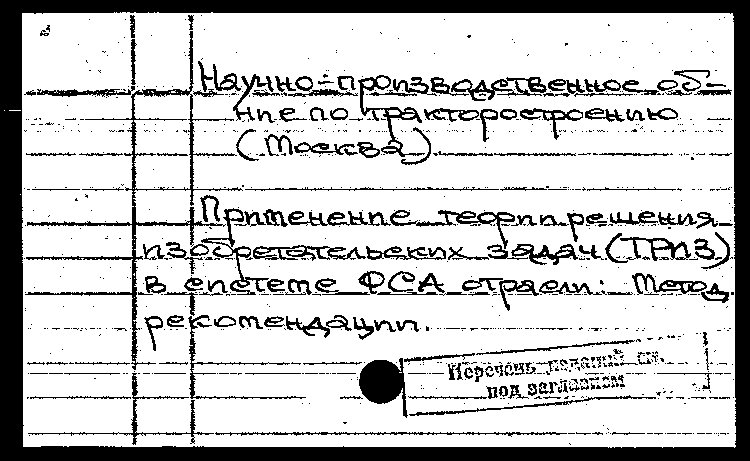 Научно-производственное об-
ние по тракторостроению
(Москва).
Применение теории решения
изобретательских задач (ТРИЗ)
в системе ФСА отрасли: Метод.
рекомендации.
Перечень изданий см.
под заглавием